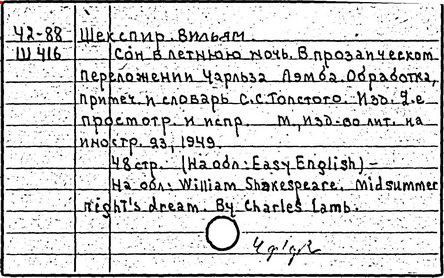 42-88 Шекспир. Вильям.
Ш 416 Сон в летнюю ночь. В прозаическом
переложении Чарльза Лэмба. Обработка,
примеч. и словарь С.С. Толстого. Изд. 2-е
просмотр. и испр. М, Изд-во лит. на
иностр. яз, 1949.
48 стр. (На обл: Easy English) –
На обл: William Shakespeare. Midsummer
night's dream. By Charles Lamb.